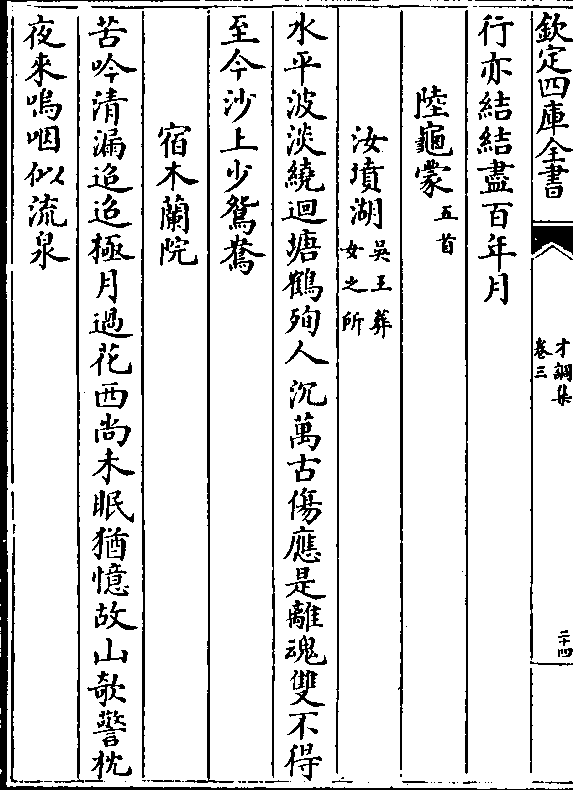 欽定四庫全書
才調集
卷三
二十四
行亦結結盡百年月
陸龜蒙五首
汝墳湖吳王葬女之所
水平波淡繞迴塘鶴殉人沉萬古傷應是離魂雙不得
至今沙上少鴛鴦
宿木蘭院
苦吟清漏迢迢極月過花西尚未眠猶憶故山欹警枕
夜來嗚咽似流泉